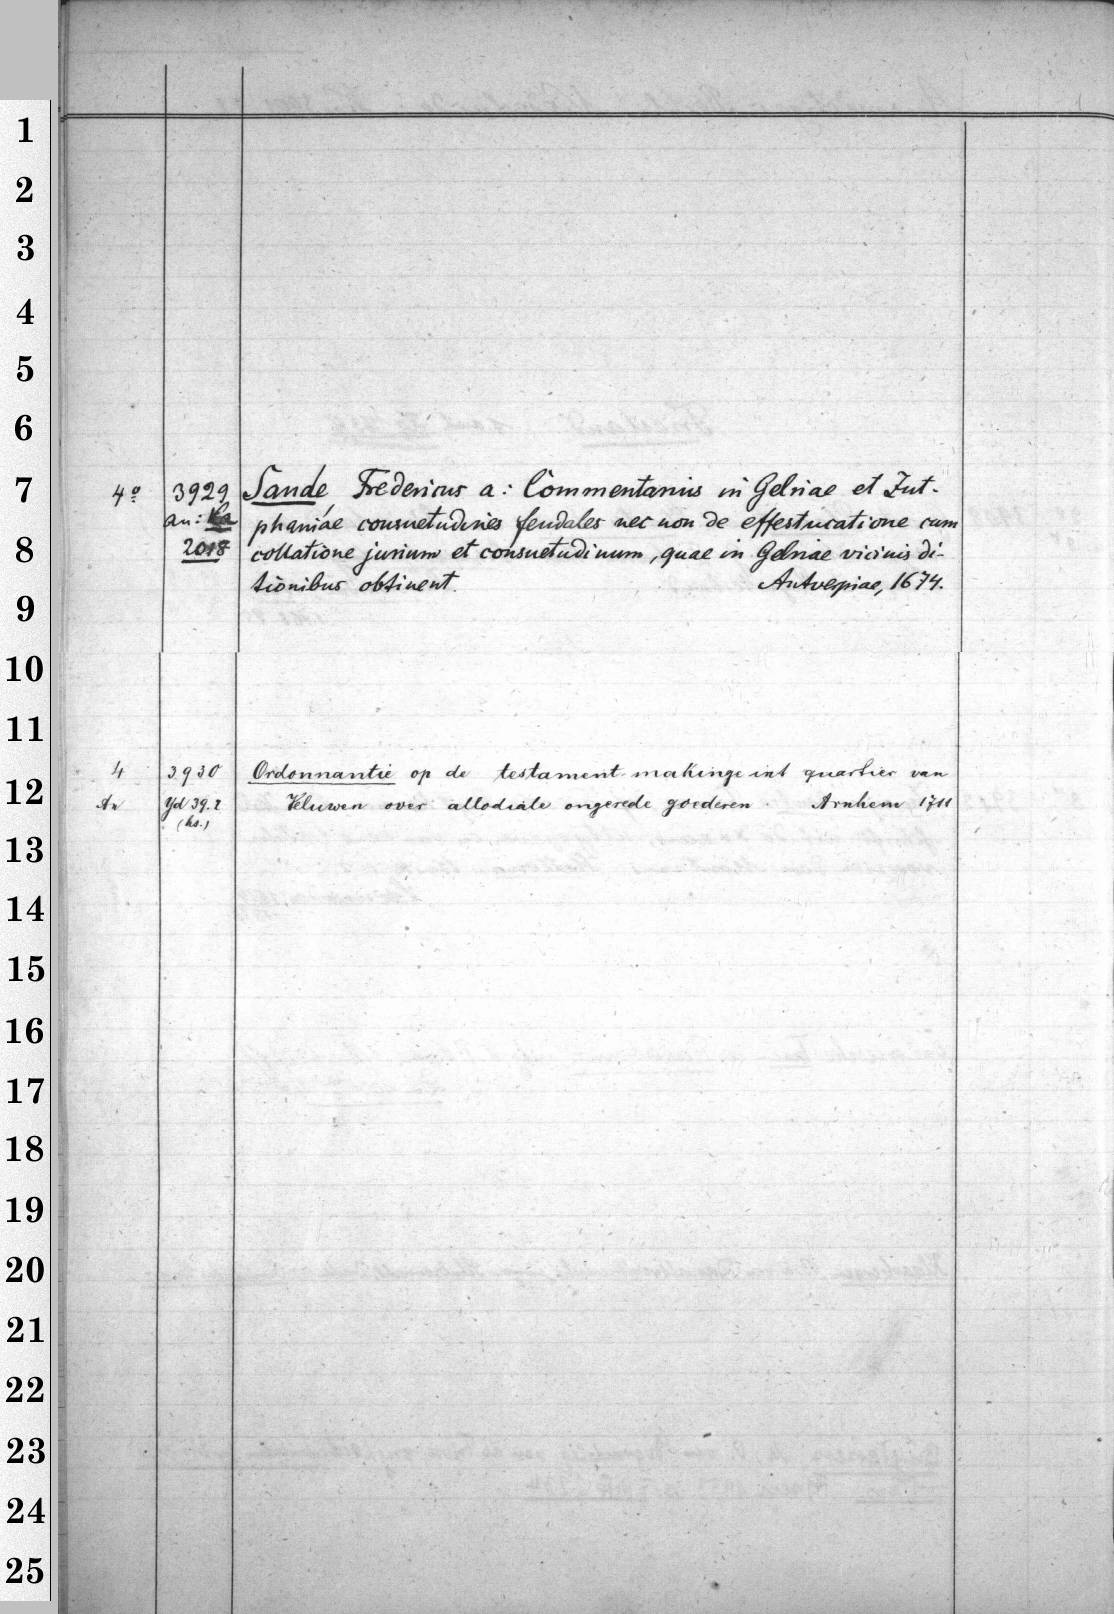 1
2
3
4
5
6
7
8
9
10
11
12
13
14
15
16
17
18
19
20
21
22
23
24
25
4º 3929 Sande Fredericus a: Commentarius in Gelriae et Zut-
an: phaniae consuetudines feudales nec non de effestucatione cum
2018 collatione jurium et consuetudinum, quae in Gelriae vicinis di-
tionibus obtinent. Antverpiae, 1674.
4 3930 Ordonnantie op de testament-makinge int quartier van
An Yd 39.2 Veluwen over allodiale ongerede goederen. Arnhem 1711
(hs.)